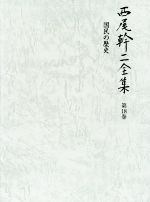 西尾幹二全集
第18巻
国民の歴史